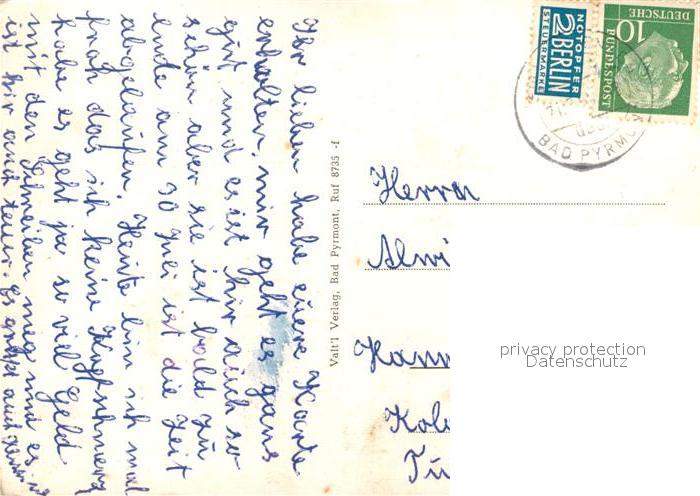 Ihr lieben habe euere Karte
erhalten, mir geht es ganz
gut und es ist hir auch so
schön aber sie ist bald zu
ende am 30 Mei ist die Zeit
abgelaufen. Heute bin ich mal
froh das ich keine Kopfschmerz
habe es geht ja so viel Geld
mit den Schreiben weg und es
ist hir auch teuer. es grüßt auch
Valt'l Verlag, Bad Pyrmont, Ruf 8735 -f
NOTOPFER
2 BERLIN
STEUERMARKE
DEUTSCHE
BUNDESPOST
10
BAD PYRMO
Herrn
Alwi
Hann
Kol
privacy protection
Datenschutz